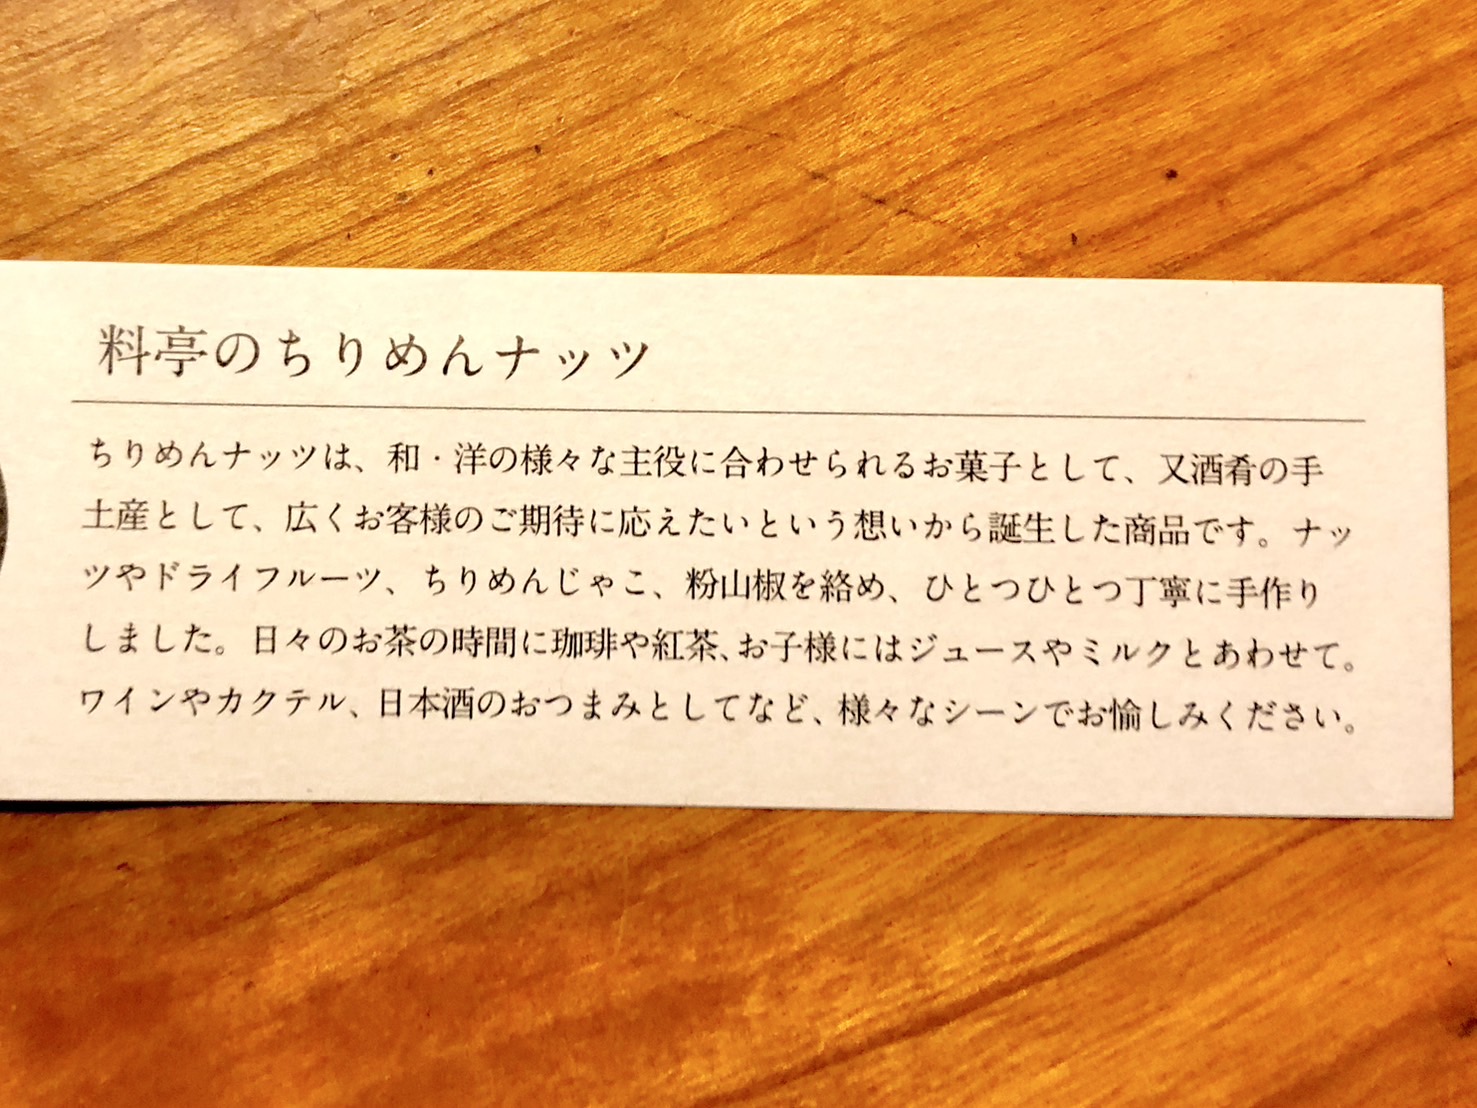 料亭のちりめんナッツ
ちりめんナッツは、和・洋の様々な主役に合わせられるお菓子として、又酒肴の手
土産として、広くお客様のご期待に応えたいという想いから誕生した商品です。ナッ
ツやドライフルーツ、ちりめんじゃこ、粉山椒を絡め、ひとつひとつ丁寧に手作り
しました。日々のお茶の時間に珈琲や紅茶、お子様にはジュースやミルクとあわせて。
ワインやカクテル、日本酒のおつまみとしてなど、様々なシーンでお愉しみください。